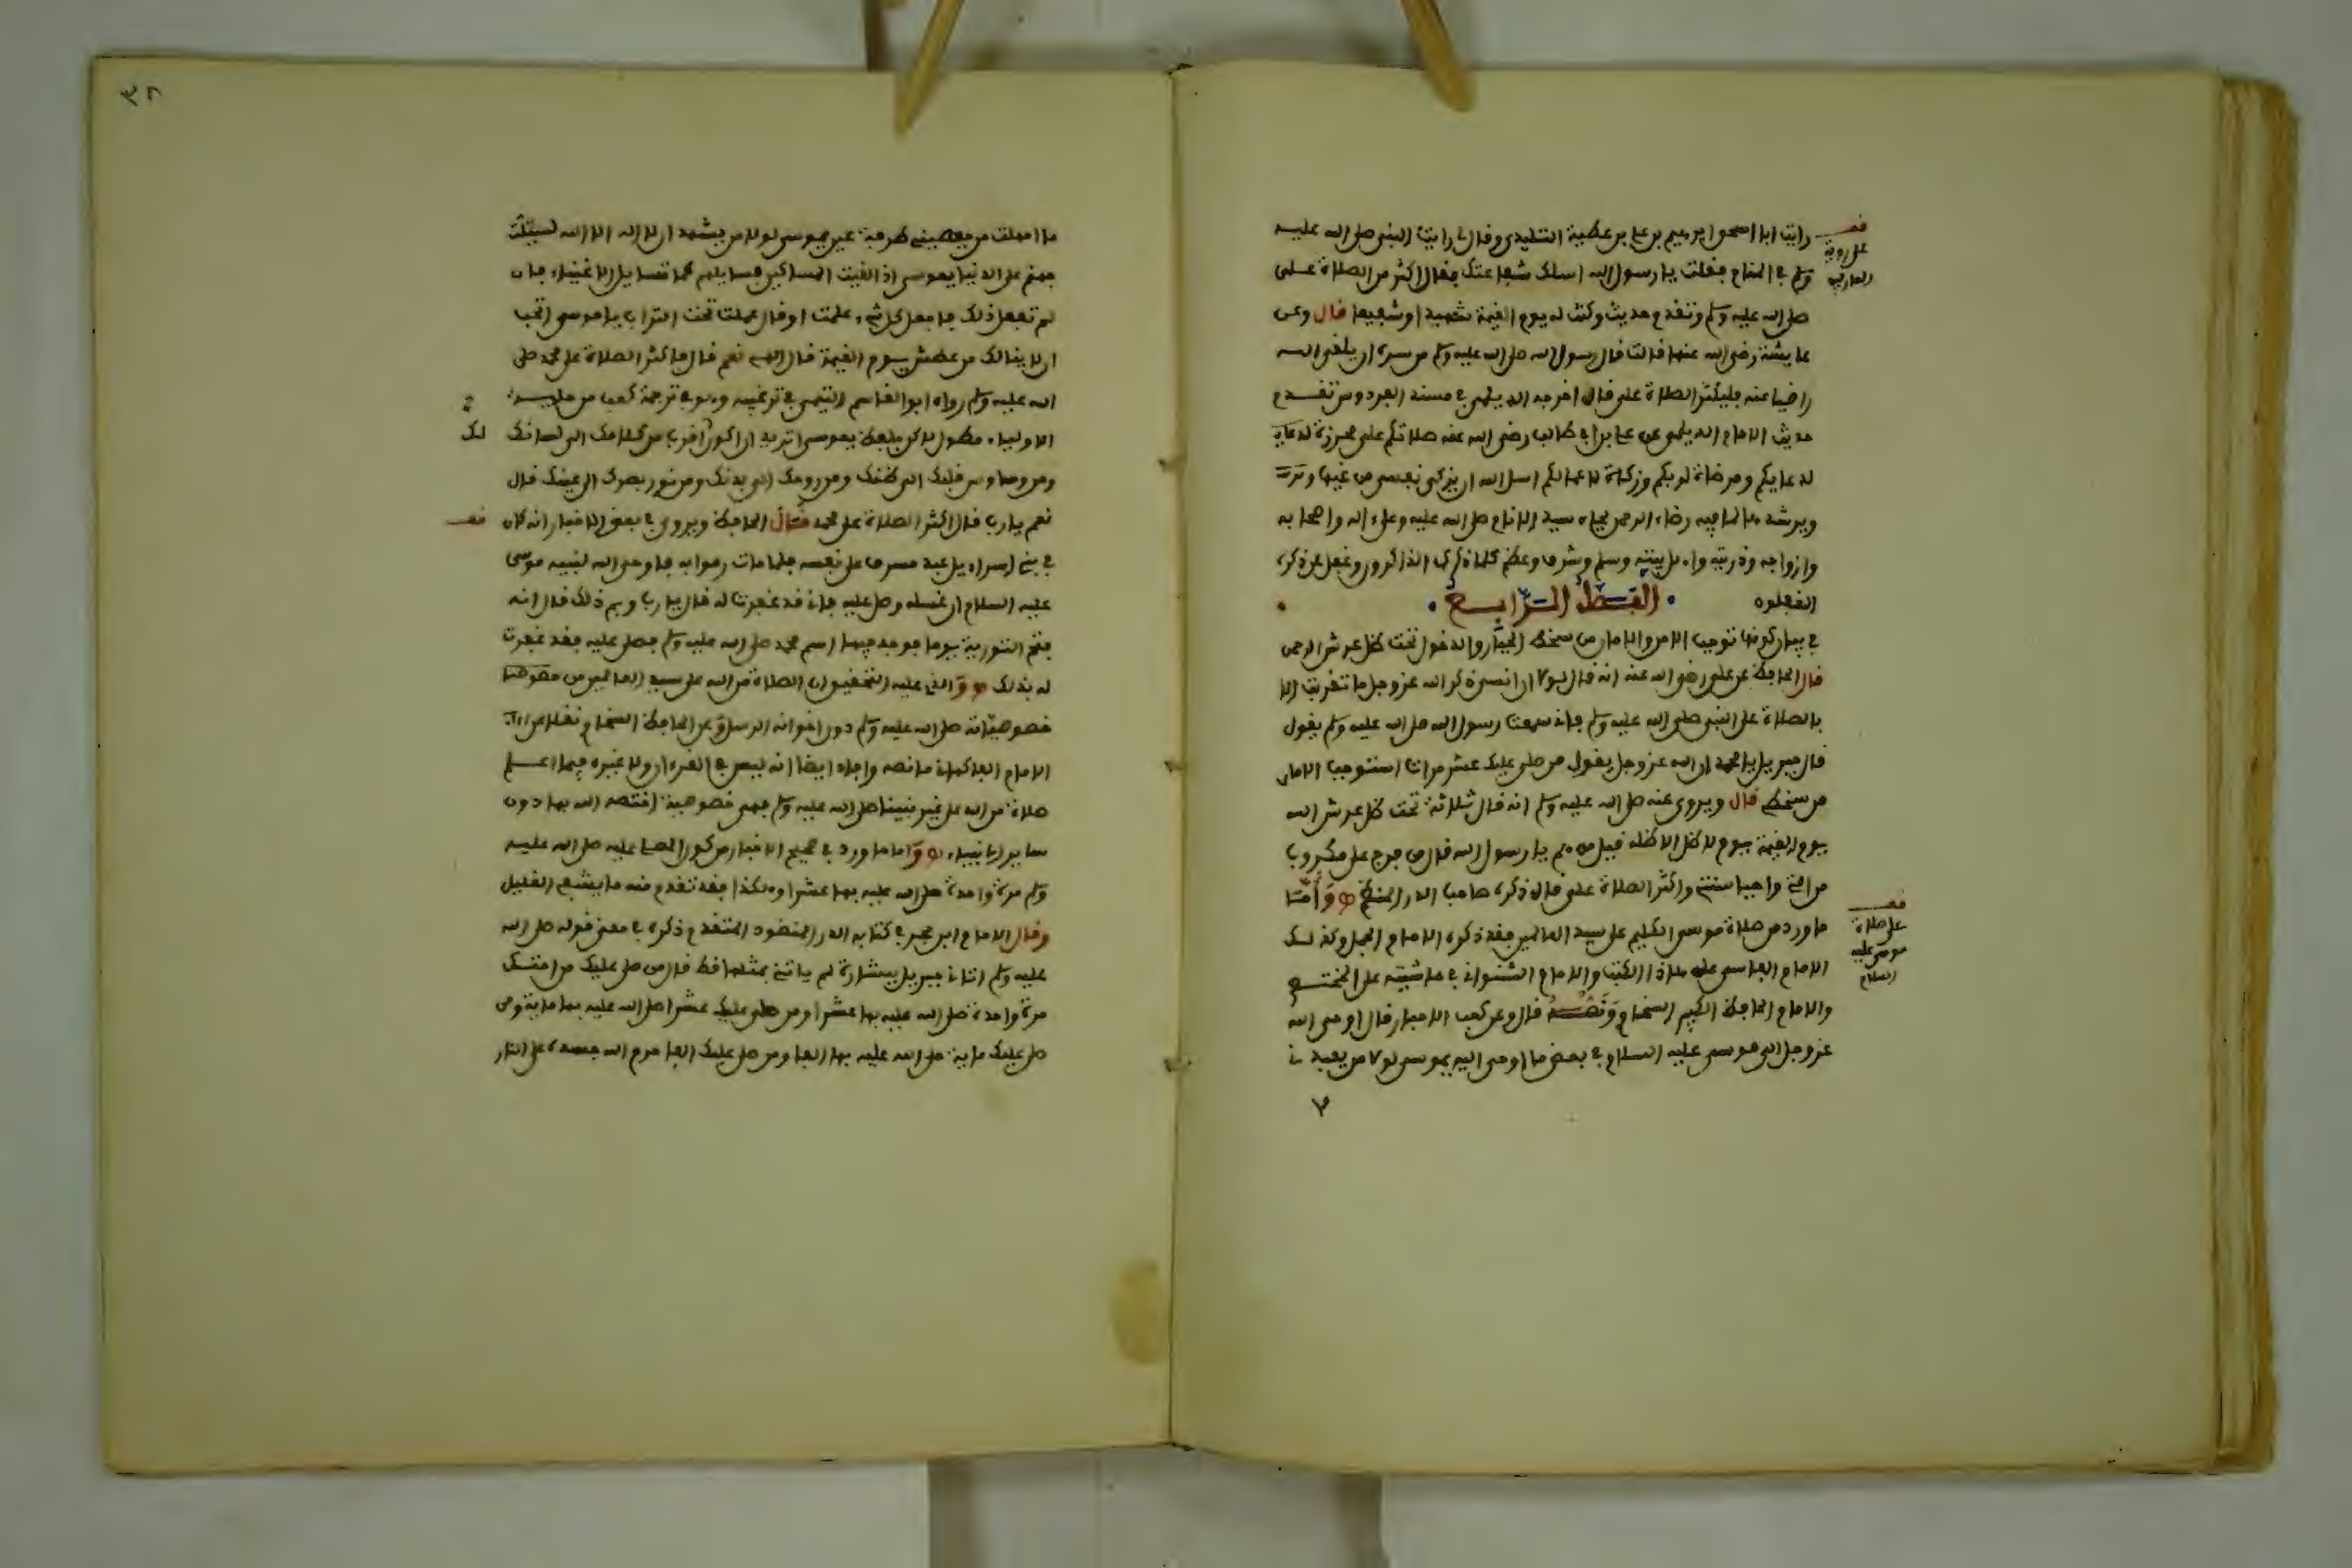 رايت ابا اسحق ابرهيم بن علي بن عطية التليدي وقال لي رايت النبي صلى الله عليه
وسلم في المنام فقلت يا رسول الله اسلك شفاعتك فقال اكثر من الصلاة على
صلى الله عليه وسلم وتقدم حديث وكنت له يوم القيمة شهيدا وشفيعا قال وعن
عايشة رضي الله عنها قالت قال رسول الله صلى الله عليه وسلم من سره ان يلقى الله
راضيا عنه فليكثر الصلاة علي قال اخرجه الديلمي في مسند الفردوس تقدم
حديث الامام الديلمي عن علي بن ابي طالب رضي الله عنه صلاتكم علي محرزة
لدعايكم ومرضاة لربكم وزكاة لاعمالكم اسل الله ان يزكي نفسي من غيها
ويرشدها لما فيه رضاء الرحمن بجاه سيد الانام صلى الله عليه وعلى اله واصحابه
وازواجه وذريته واهل بيته وسلم وشرف وعظم كلما ذكره الذاكرون وغفل عن ذكره
الغفلون القسط الرابع
في بيان كونها توجب الامن والامان من سخط الجبار والدخول تحت ظل عرش الرحمن
قال الحافظ عن علي رضي الله عنه انه قال لولا ان انسى ذكر الله عز وجل ما تقربت الا
بالصلاة على النبي صلى الله عليه وسلم فاني سمعت رسول الله صلى الله عليه وسلم يقول
قال جبريل يا محمد ان الله عز وجل يقول من صلى عليك عشر مرات استوجب الامان
من سخطي قال ويروى عنه صلى الله عليه وسلم انه قال ثلاثة تحت ظل عرش الله
يوم القيمة يوم لا ظل الا ظله قيل من هم يا رسول الله قال من فرج على مكروب
من امتي واحيا سنتي واكثر الصلاة علي قال ذكره صاحب الدر المنظم وأما
ما ورد من صلاة موسى الكليم على سيد العالمين فقد ذكره الامام الجمل وكذلك
الامام الفاسي على هذا الكتب والامام الشنواني في حاشيته على المختصر
والامام الحافظ الكبير السخاوي ونصه قال وعن كعب الاحبار قال اوحى الله
عز وجل الى موسى عليه السلام في بعض ما اوحى اليه يموسى لولا من يعبدني
على صلاة
موسى عليه
السلام
ما امهلت من يعصيني طرفة عين يموسى لولا من يشهد ان لا اله الا الله لسيلت
جهنم على الدنيا يموسى اذا لقيت المساكين فسايلهم كما تسايل الاغنياء فان
لم تفعل ذلك فاجعل كل شيء علمت او قال عملت تحت التراب يا موسى اتحب
ان لا ينالك من عطش يوم القيمة قال الهي نعم قال فاكثر الصلاة على محمد صلى
الله عليه وسلم رواه ابو القاسم التيمي في ترغيبه وهو في ترجمة كعب من حلية
الاولياء مطول لاكن بلفظ يموسى اتريد ان اكون اقرب من كلامك الى لسانك
ومن وسواس قلبك الى قلبك ومن روحك الى بدنك ومن نور بصرك الى عينك قال
نعم يا رب قال اكثر الصلاة على محمد قال الحافظ ويروى في بعض الاخبار انه كان
في بني اسراءيل عبد مسرف على نفسه فلما مات رموا به فاوحى الله لنبيه موسى
عليه السلام ان غسله وصل عليه فاني قد غفرت له قال يا رب وبم ذلك قال انه
فتح التورية يوما فوجد فيها اسم محمد صلى الله عليه وسلم فصلى عليه فقد غفرت
له بذلك والذي عليه التحقيق ان الصلاة من الله على سيد العالمين من
خصوصياته صلى الله عليه وسلم دون اخوانه الرسل وعن الحافظ السخاوي نقلا عن
الامام الفاكهاني ما نصه وافاد ايضا انه ليس في القرءان ولا غيره فيما اعلم
صلاة من الله على غير نبينا صلى الله عليه وسلم فهي خصوصية اختصه الله بها دون
ساير الانبياء واما ما ورد في صحيح الاخبار من كون المصلي عليه صلى الله عليه
وسلم مرة واحدة صلى الله عليه بها عشرا وهكذا فقد تقدم منه ما يشفي الغليل
وقال الامام ابن حجر في كتابه الدر المنضود المتقدم ذكره في معنى قوله صلى الله
عليه وسلم اتاني جبريل ببشارة لم ياتني بمثلها قط قال من صلى عليك من امتك
مرة واحدة صلى الله عليه بها عشرا ومن صلى عليك عشرا صلى الله عليه بها ماية ومن
صلى عليك ماية صلى الله عليه بها الفا ومن صلى عليك الفا حرم الله جسده على النار